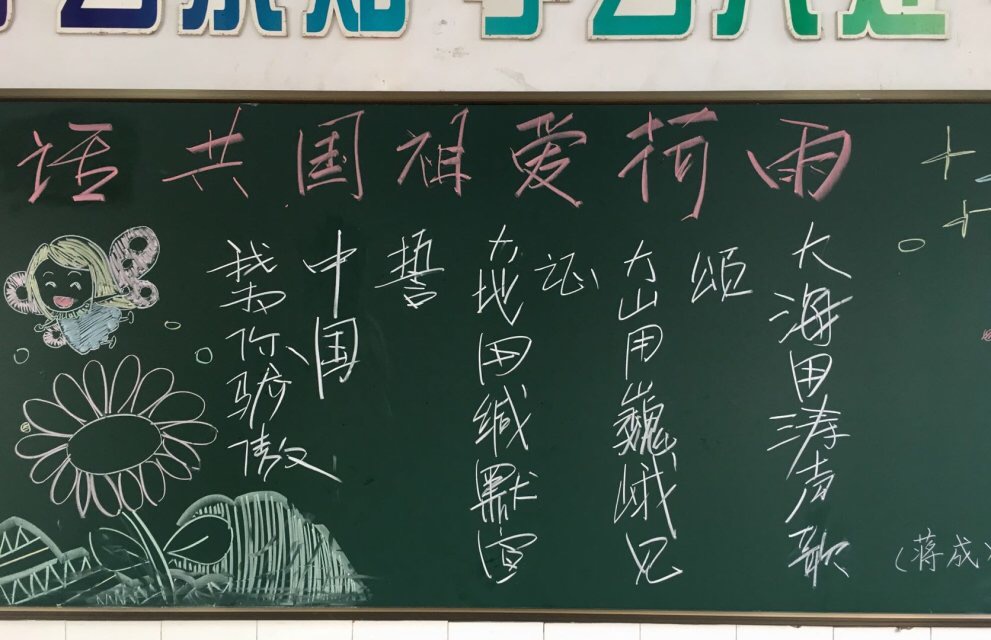 雨荷爱祖国共话
大海用涛声歌
颂
大山用巍峨见
证
大地用缄默宣
誓
中国
我为你骄傲
(蒋成)